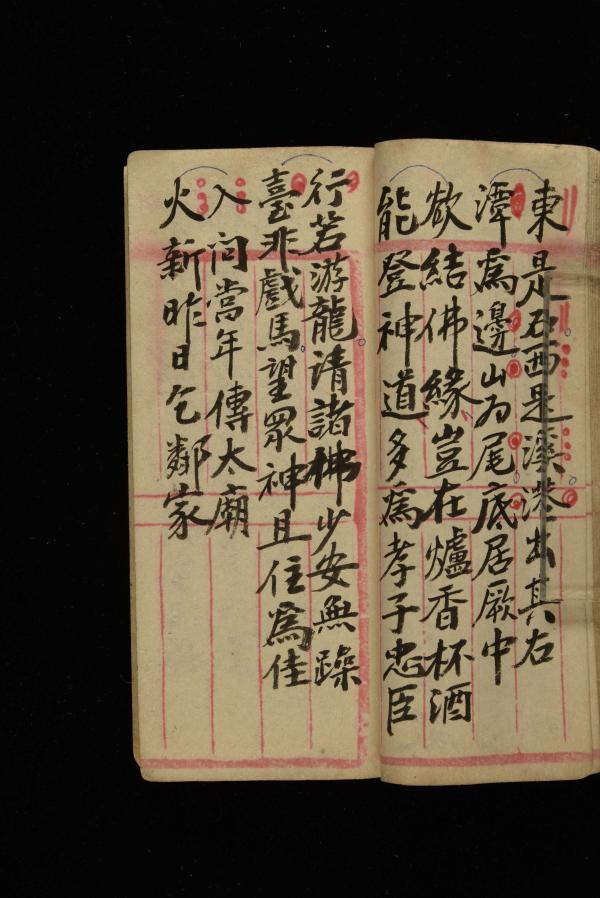 東是石西是溪港出其右
潭爲邊山为尾底居厥中
欲結佛緣豈在爐香杯酒
能登神道多爲孝子忠臣
行若游龍請諸佛少安無躁
臺非戲馬望眾神且住爲佳
入问當年傳太廟
火新昨日乞鄰家